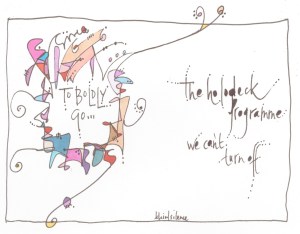 TO BOLDLY
GO...
the holodeck
programme
we can't
turn off